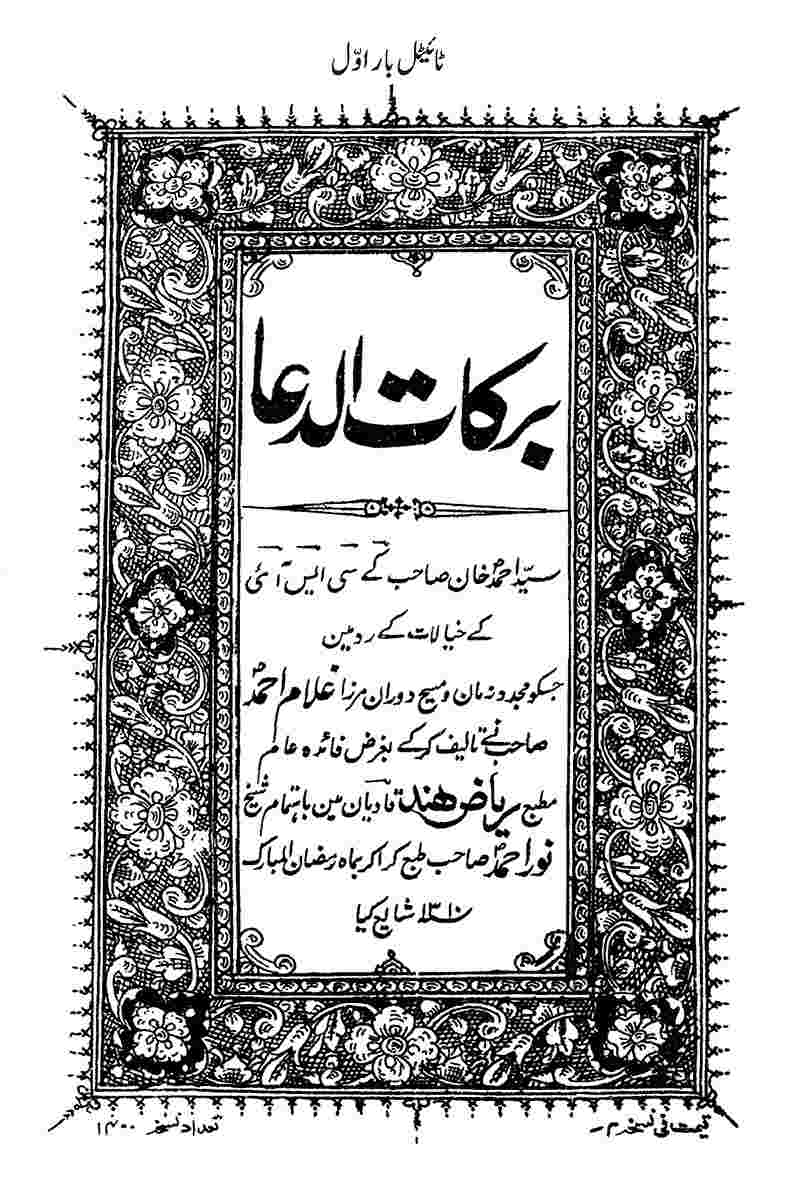 ٹائیٹل بار اوّل
برکات الدعا
سیّد احمد خان صاحب کے سی ایس آئی
کے خیالات کے رد مین
جسکو مجدد زمان و مسیح دوران مرزا غلام احمد
صاحب نے تالیف کرکے بغرض فائدہ عام
مطبع ریاض ھند قادیان مین باہتمام شیخ
نور احمد صاحب طبع کراکر بماہ رمضان المبارک
۱۳۱۰ شایع کیا
قیمت فی نسخہ
تعداد نسخہ